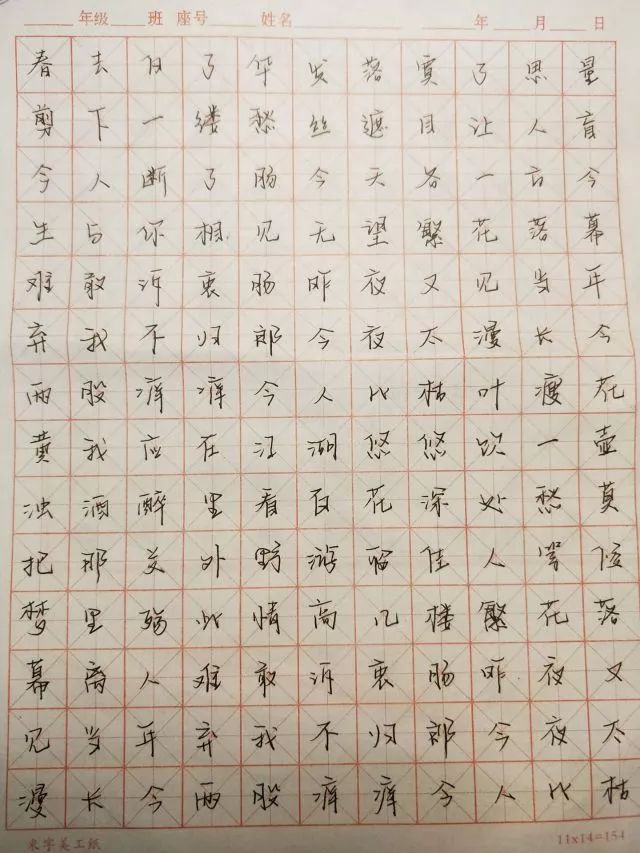 _____年级_____班 座号_____姓名_____ _____年_____月_____日
春去白了华发落寞了思量
剪下一缕愁丝遮目让人盲
令人断了肠今天各一方今
生与你相见无望繁花落幕
难敢诉衷肠昨夜又见当年
弃我不归郎今夜太漫长今
两股痒痒今人比枯叶瘦花
黄我应在江湖悠悠饮一壶
浊酒醉里看百花深处愁莫
把那关外野游佳人
梦里殇此情高几楼繁花落
幕离人难敢诉衷肠昨夜又
见当年弃我不归郎今夜太
漫长今两股痒痒今人比枯
米字美工纸 11x14=154